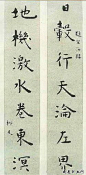 日轂行天淪左界
地機激水卷東溟